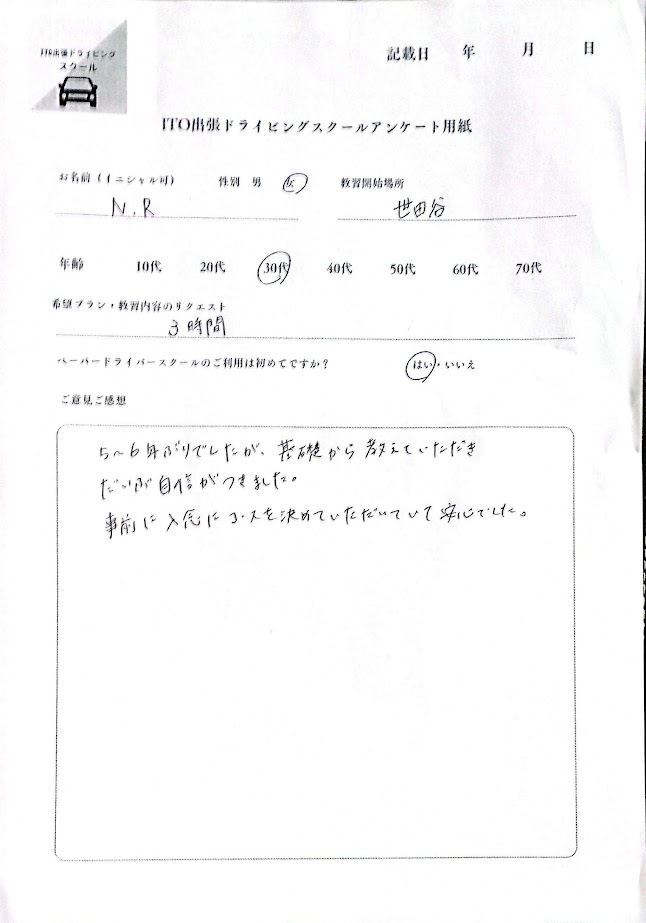 ITO出張ドライビング
スクール
記載日 年 月 日
ITO出張ドライビングスクールアンケート用紙
お名前(イニシャル可) 性別 男 女 教習開始場所
N.R 世田谷
年齢 10代 20代 30代 40代 50代 60代 70代
希望プラン・教習内容のリクエスト
3時間
ペーパードライバースクールのご利用は初めてですか? はい・いいえ
ご意見ご感想
5〜6年ぶりでしたが、基礎から教えていただき
だいぶ自信がつきました。
事前に入念にコースを決めていただいていて安心でした。